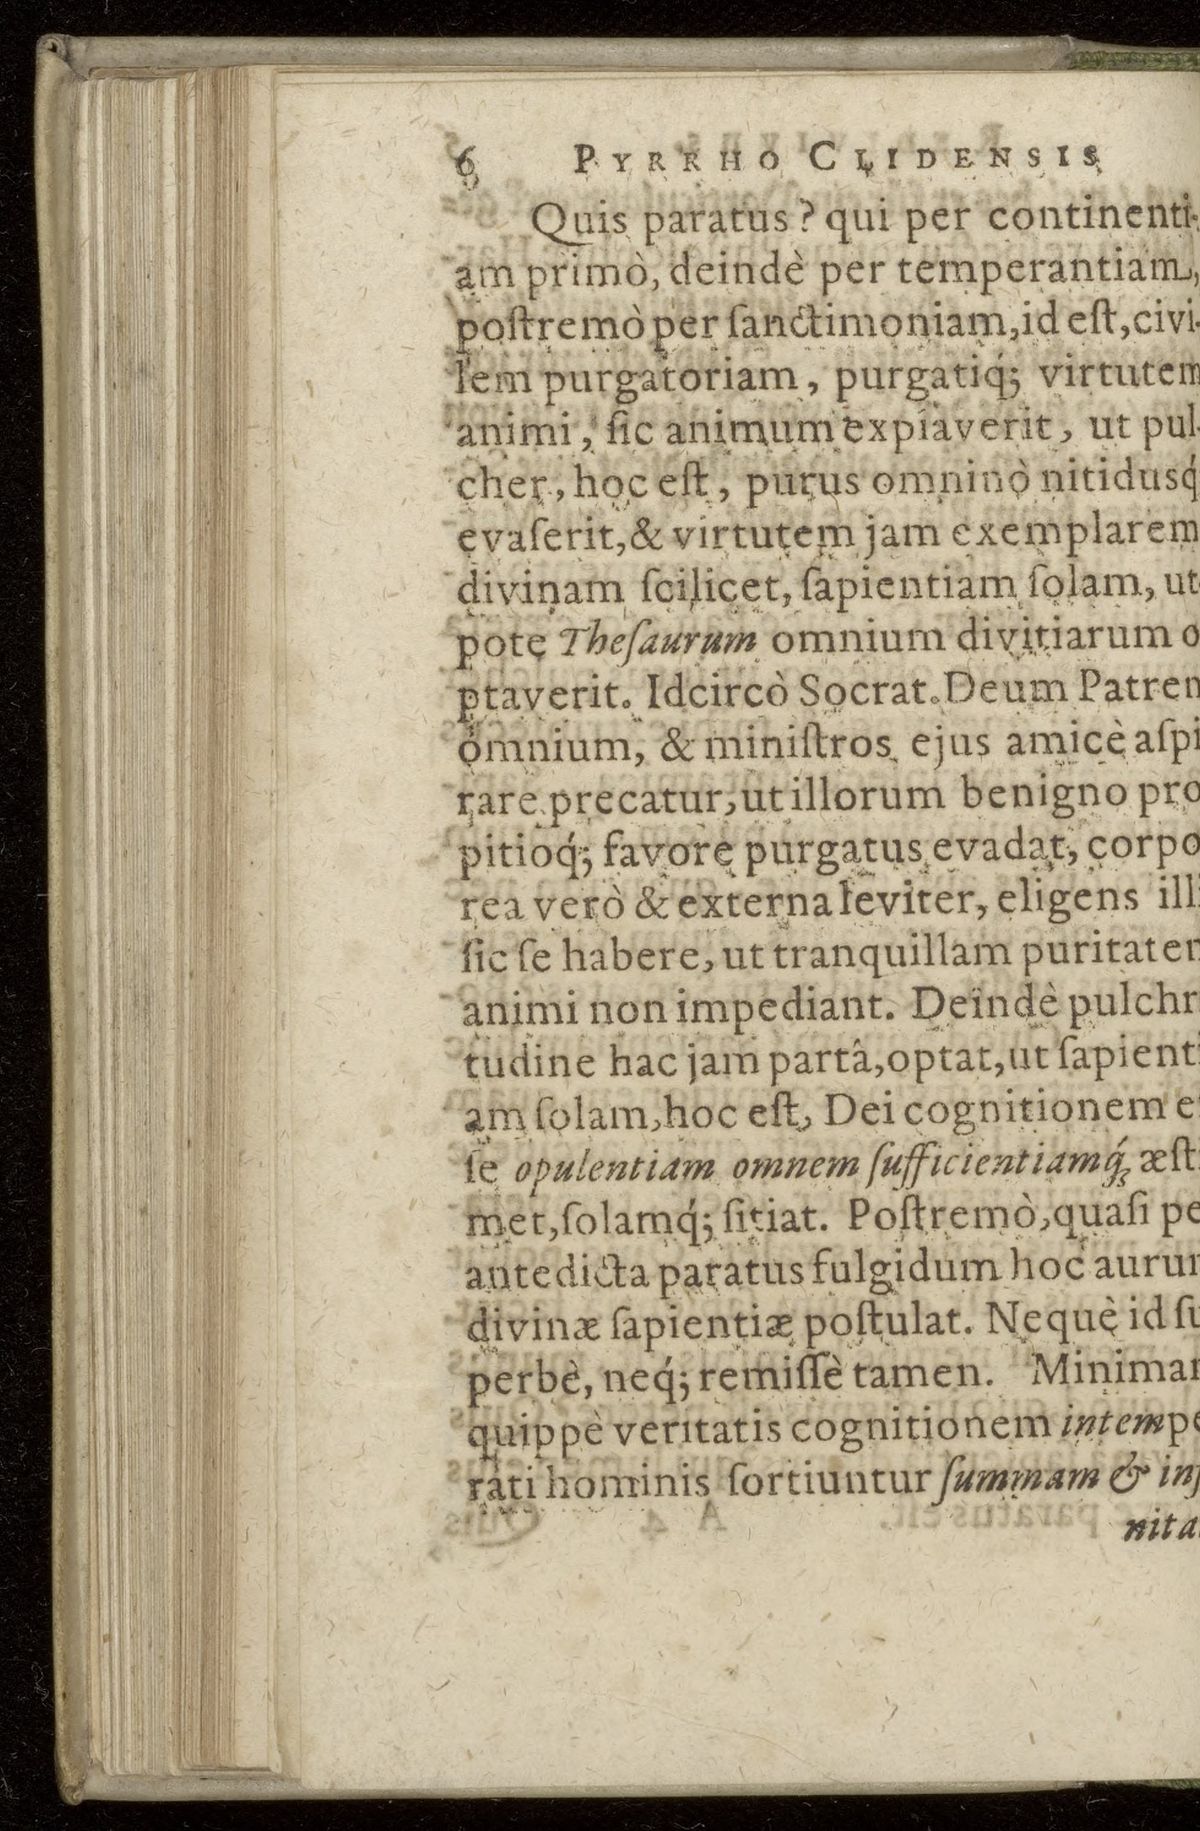 6 PYRRHO CLIDENSIS
Quis paratus? qui per continenti-
am primò, deindè per temperantiam,
poſtremò per ſanctimoniam, id eſt, civi-
lem purgatoriam, purgatiq́; virtutem
animi, ſic animum expiaverit, ut pul-
cher, hoc eſt, purus omninò nitidusq́
evaſerit, & virtutem jam exemplarem
divinam ſcilicet, ſapientiam ſolam, ut
pote Theſaurum omnium divitiarum o
ptaverit. Idcircò Socrat. Deum Patrem
omnium, & miniſtros ejus amicè aſpi
rare precatur, ut illorum benigno pro
pitioq́; favore purgatus evadat, corpo
rea verò & externa leviter, eligens illi
ſic ſe habere, ut tranquillam puritatem
animi non impediant. Deindè pulchr
tudine hac jam partâ, optat, ut ſapienti
am ſolam, hoc eſt, Dei cognitionem eſ
ſe opulentiam omnem ſufficientiamq́; æſti
met, ſolamq́; ſitiat. Poſtremò, quaſi pe
antedicta paratus fulgidum hoc aurum
divinæ ſapientiæ poſtulat. Nequè id ſu
perbè, neq́; remiſſè tamen. Minimam
quippè veritatis cognitionem intempe
rati hominis ſortiuntur ſummam & inf
nita